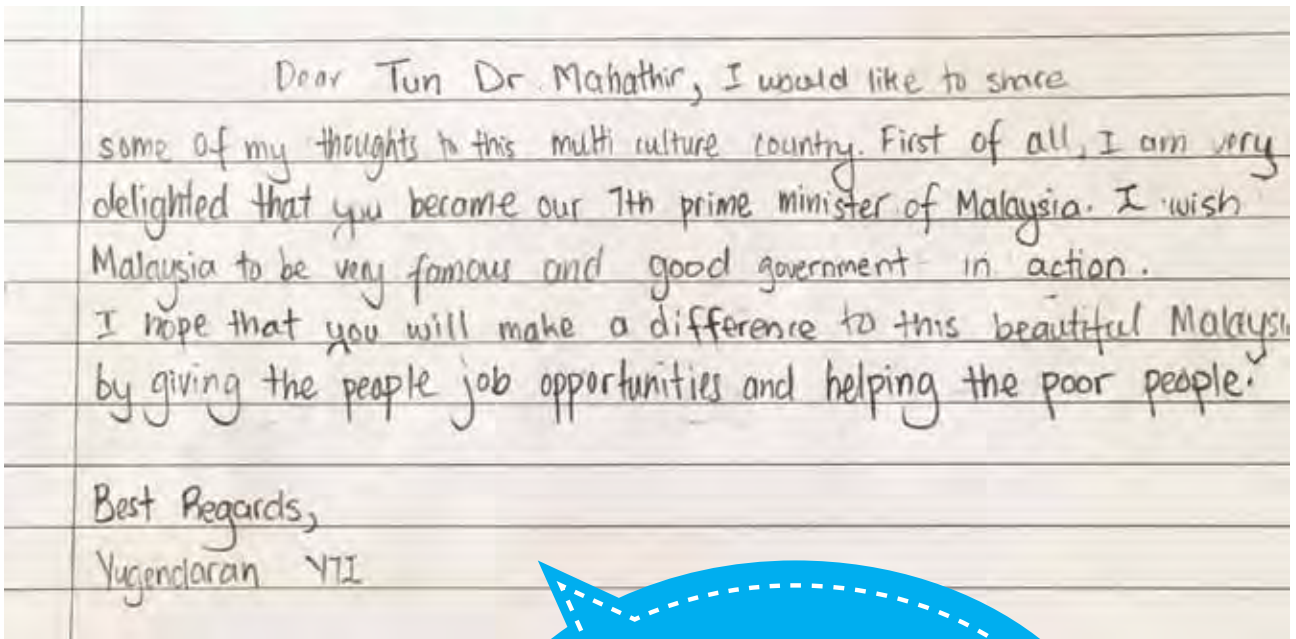 Dear Tun Dr. Mahathir, I would like to share
some of my thoughts to this multi culture country. First of all, I am very
delighted that you become our 7th prime minister of Malaysia. I wish
Malaysia to be very famous and good government in action.
I hope that you will make a difference to this beautiful Malaysia
by giving the people job opportunities and helping the poor people.
Best Regards,
Yugendaran Y7I